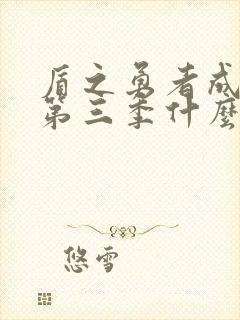 盾之勇者成
第三季什麼
悠雪